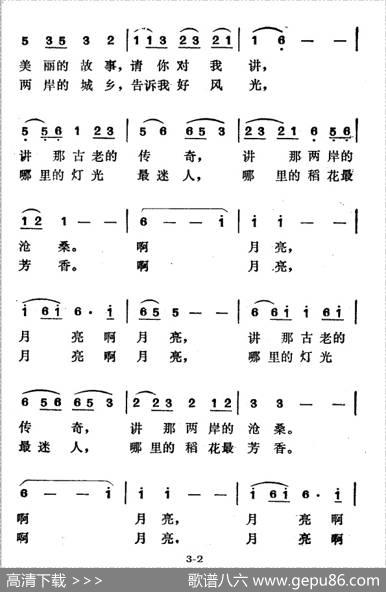 5 35 3 2 | 113 23 23 21 | 1 6 - -
美丽的故事,请你对我讲,
两岸的城乡,告诉我好风光,
5 56 1 23 | 5 6 653 | 23 21 6 56
讲那古老的传奇,讲那两岸的
哪里的灯光最迷人,哪里的稻花最
12 1 - - | 6 - - i | i i - -
沧桑。啊月亮,
芳香。啊月亮,
i 6i 6· i | 65 5 - - | 6 6i i 6i
月亮啊月亮,讲那古老的
月亮啊月亮,哪里的灯光
6 65 65 3 | 2 23 2 12 | 3 3 - -
传奇,讲那两岸的沧桑。
最迷人,哪里的稻花最芳香。
6 - - i | i i - - | i 6i 6· i
啊月亮,月亮啊
啊月亮,月亮啊
3-2
高清下载 >>>
歌谱八六 www.gepu86.com